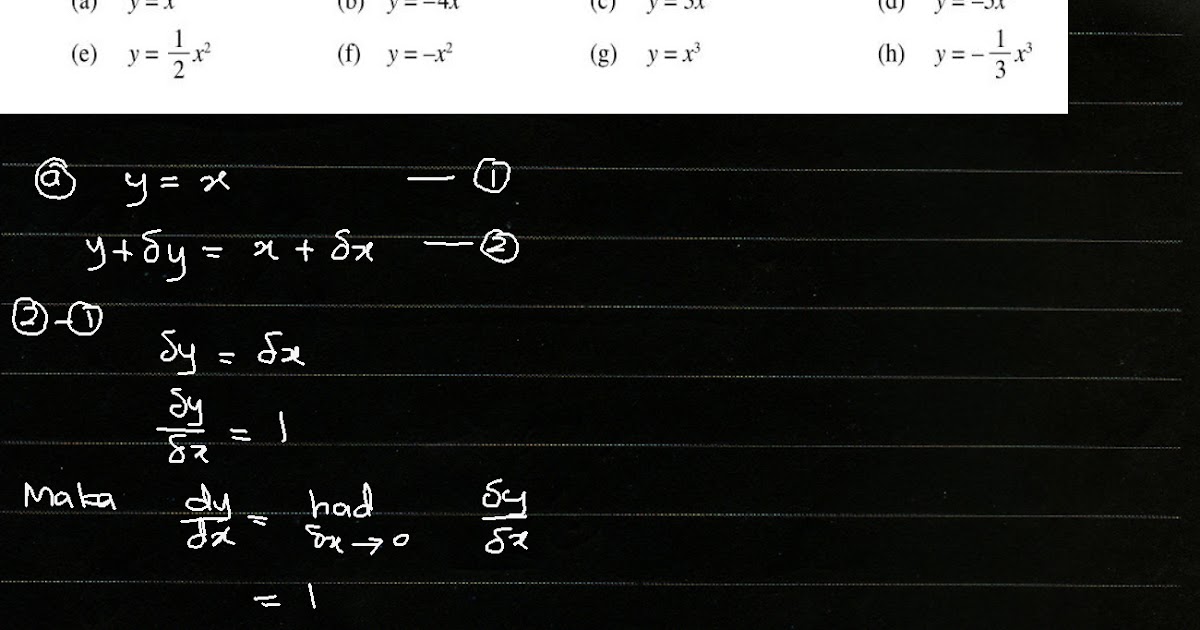 (a) y = x (b) y = –4x (c) y = 3x (d) y = –5x
(e) y = 1/2 x² (f) y = –x² (g) y = x³ (h) y = – 1/3 x³
ⓐ y = x — ①
y + δy = x + δx — ②
② - ①
δy = δx
δy/δx = 1
Maka dy/dx = had δx → 0 δy/δx
= 1